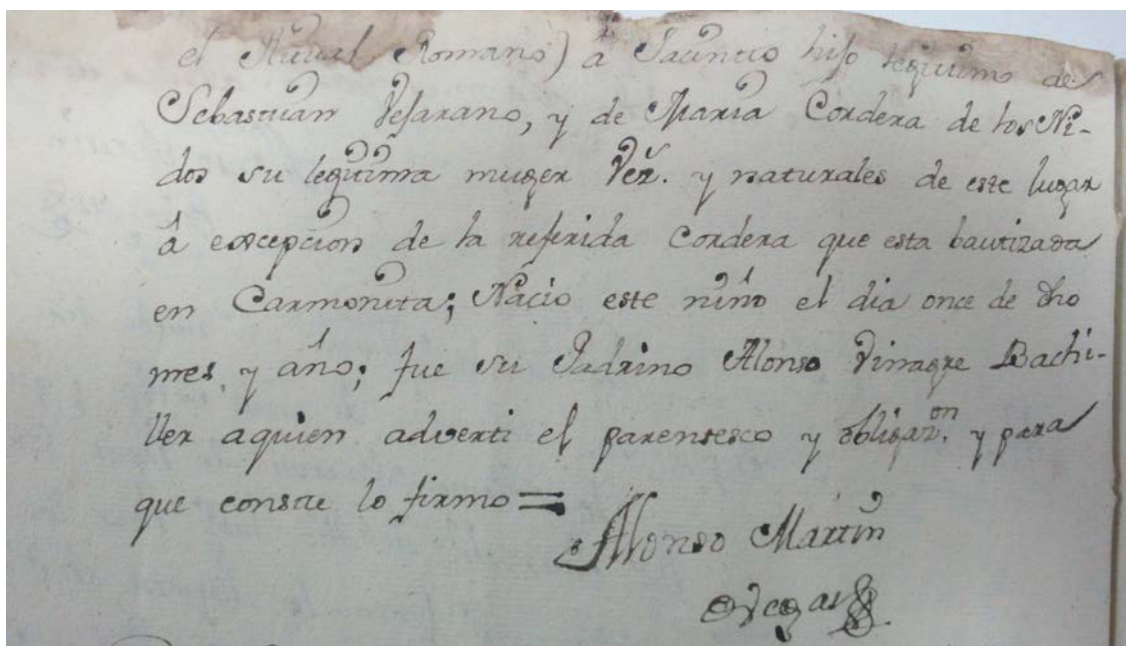 el Ritual Romano) a Jacinto hijo legitimo de
Sebastian Vejarano, y de Maria Cordera de los Ni-
dos su legitima muger Vez.s y naturales de este lugar
â excepcion de la referida Cordera que esta bautizada
en Carmonita; Nacio este niño el dia once de dho
mes, y año; fue su Padrino Alonso Vinagre Bachi-
ller aquien adverti el parentesco y obligaz.on y para
que conste lo firmo =
Alonso Martin